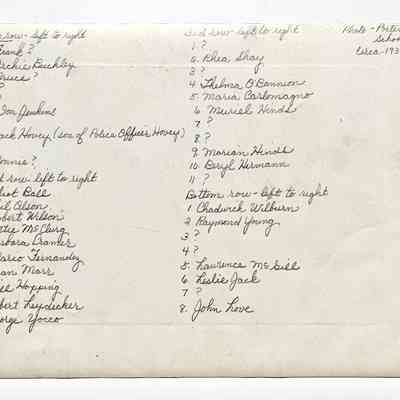 row - left to right
Frank?
Archie Buckley
Bruce?
?
?
Tom Jenkins
Jack Hovey (son of Police Officer Hovey)
?
Connie?
row left to right
Eliot Ball
Olson
Robert Wilson
McClurg
Barbara Cramer
Marco Fernandez
Marr
Hopping
Robert Leydecker
George Yocco
3rd row - left to right
1. ?
2. Rhea Shay
3 ?
4 Thelma O'Bannion
5. Maria Carlomagno
6 Muriel Hinds
7 ?
8 ?
9. Marian Hinds
10. Beryl Hermann
11 ?
Bottom row - left to right
1. Chadwick Wilburn
2 Raymond Young
3 ?
4 ?
5. Lawrence McGill
6 Leslie Jack
7 ?
8. John Love
Photo - Porter
School
Circa - 193